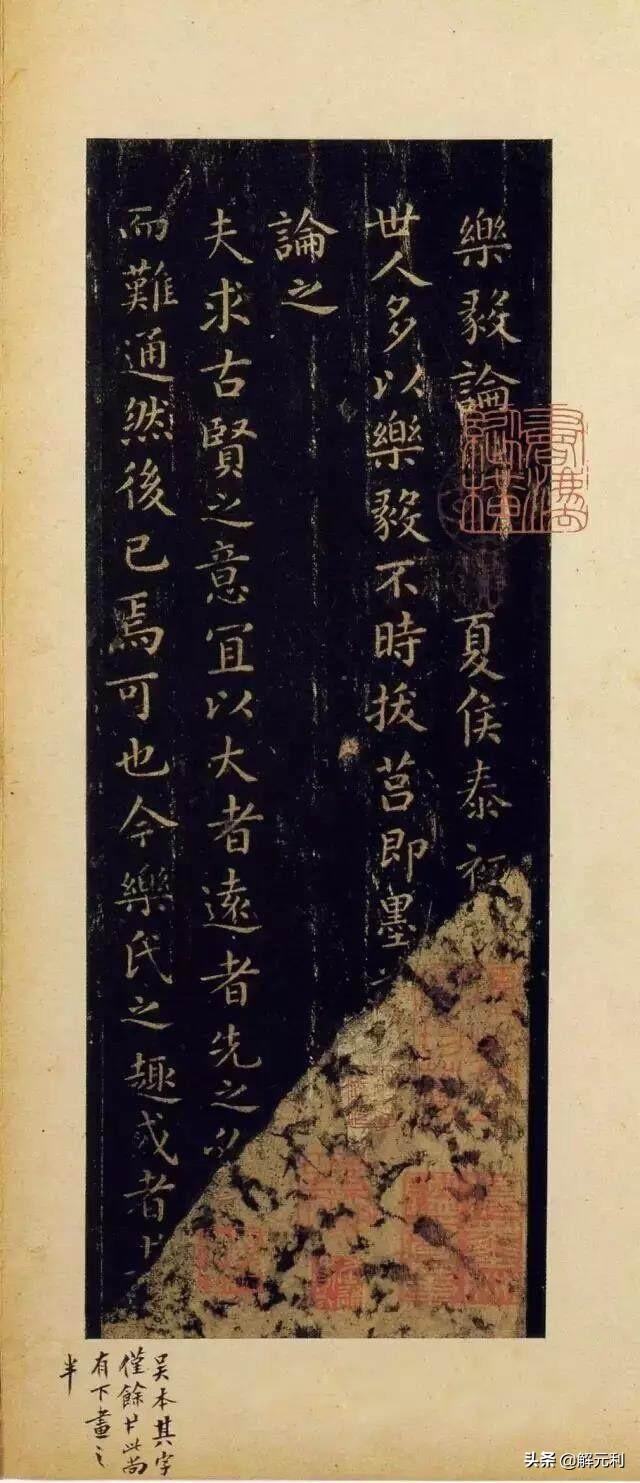 樂毅論 夏侯泰初
世人多以樂毅不時拔莒即墨
論之
夫求古賢之意宜以大者遠者先之必
而難通然後已焉可也今樂氏之趣或者
吴本其字
僅餘此尚
有下畫之
半
头条@解元利